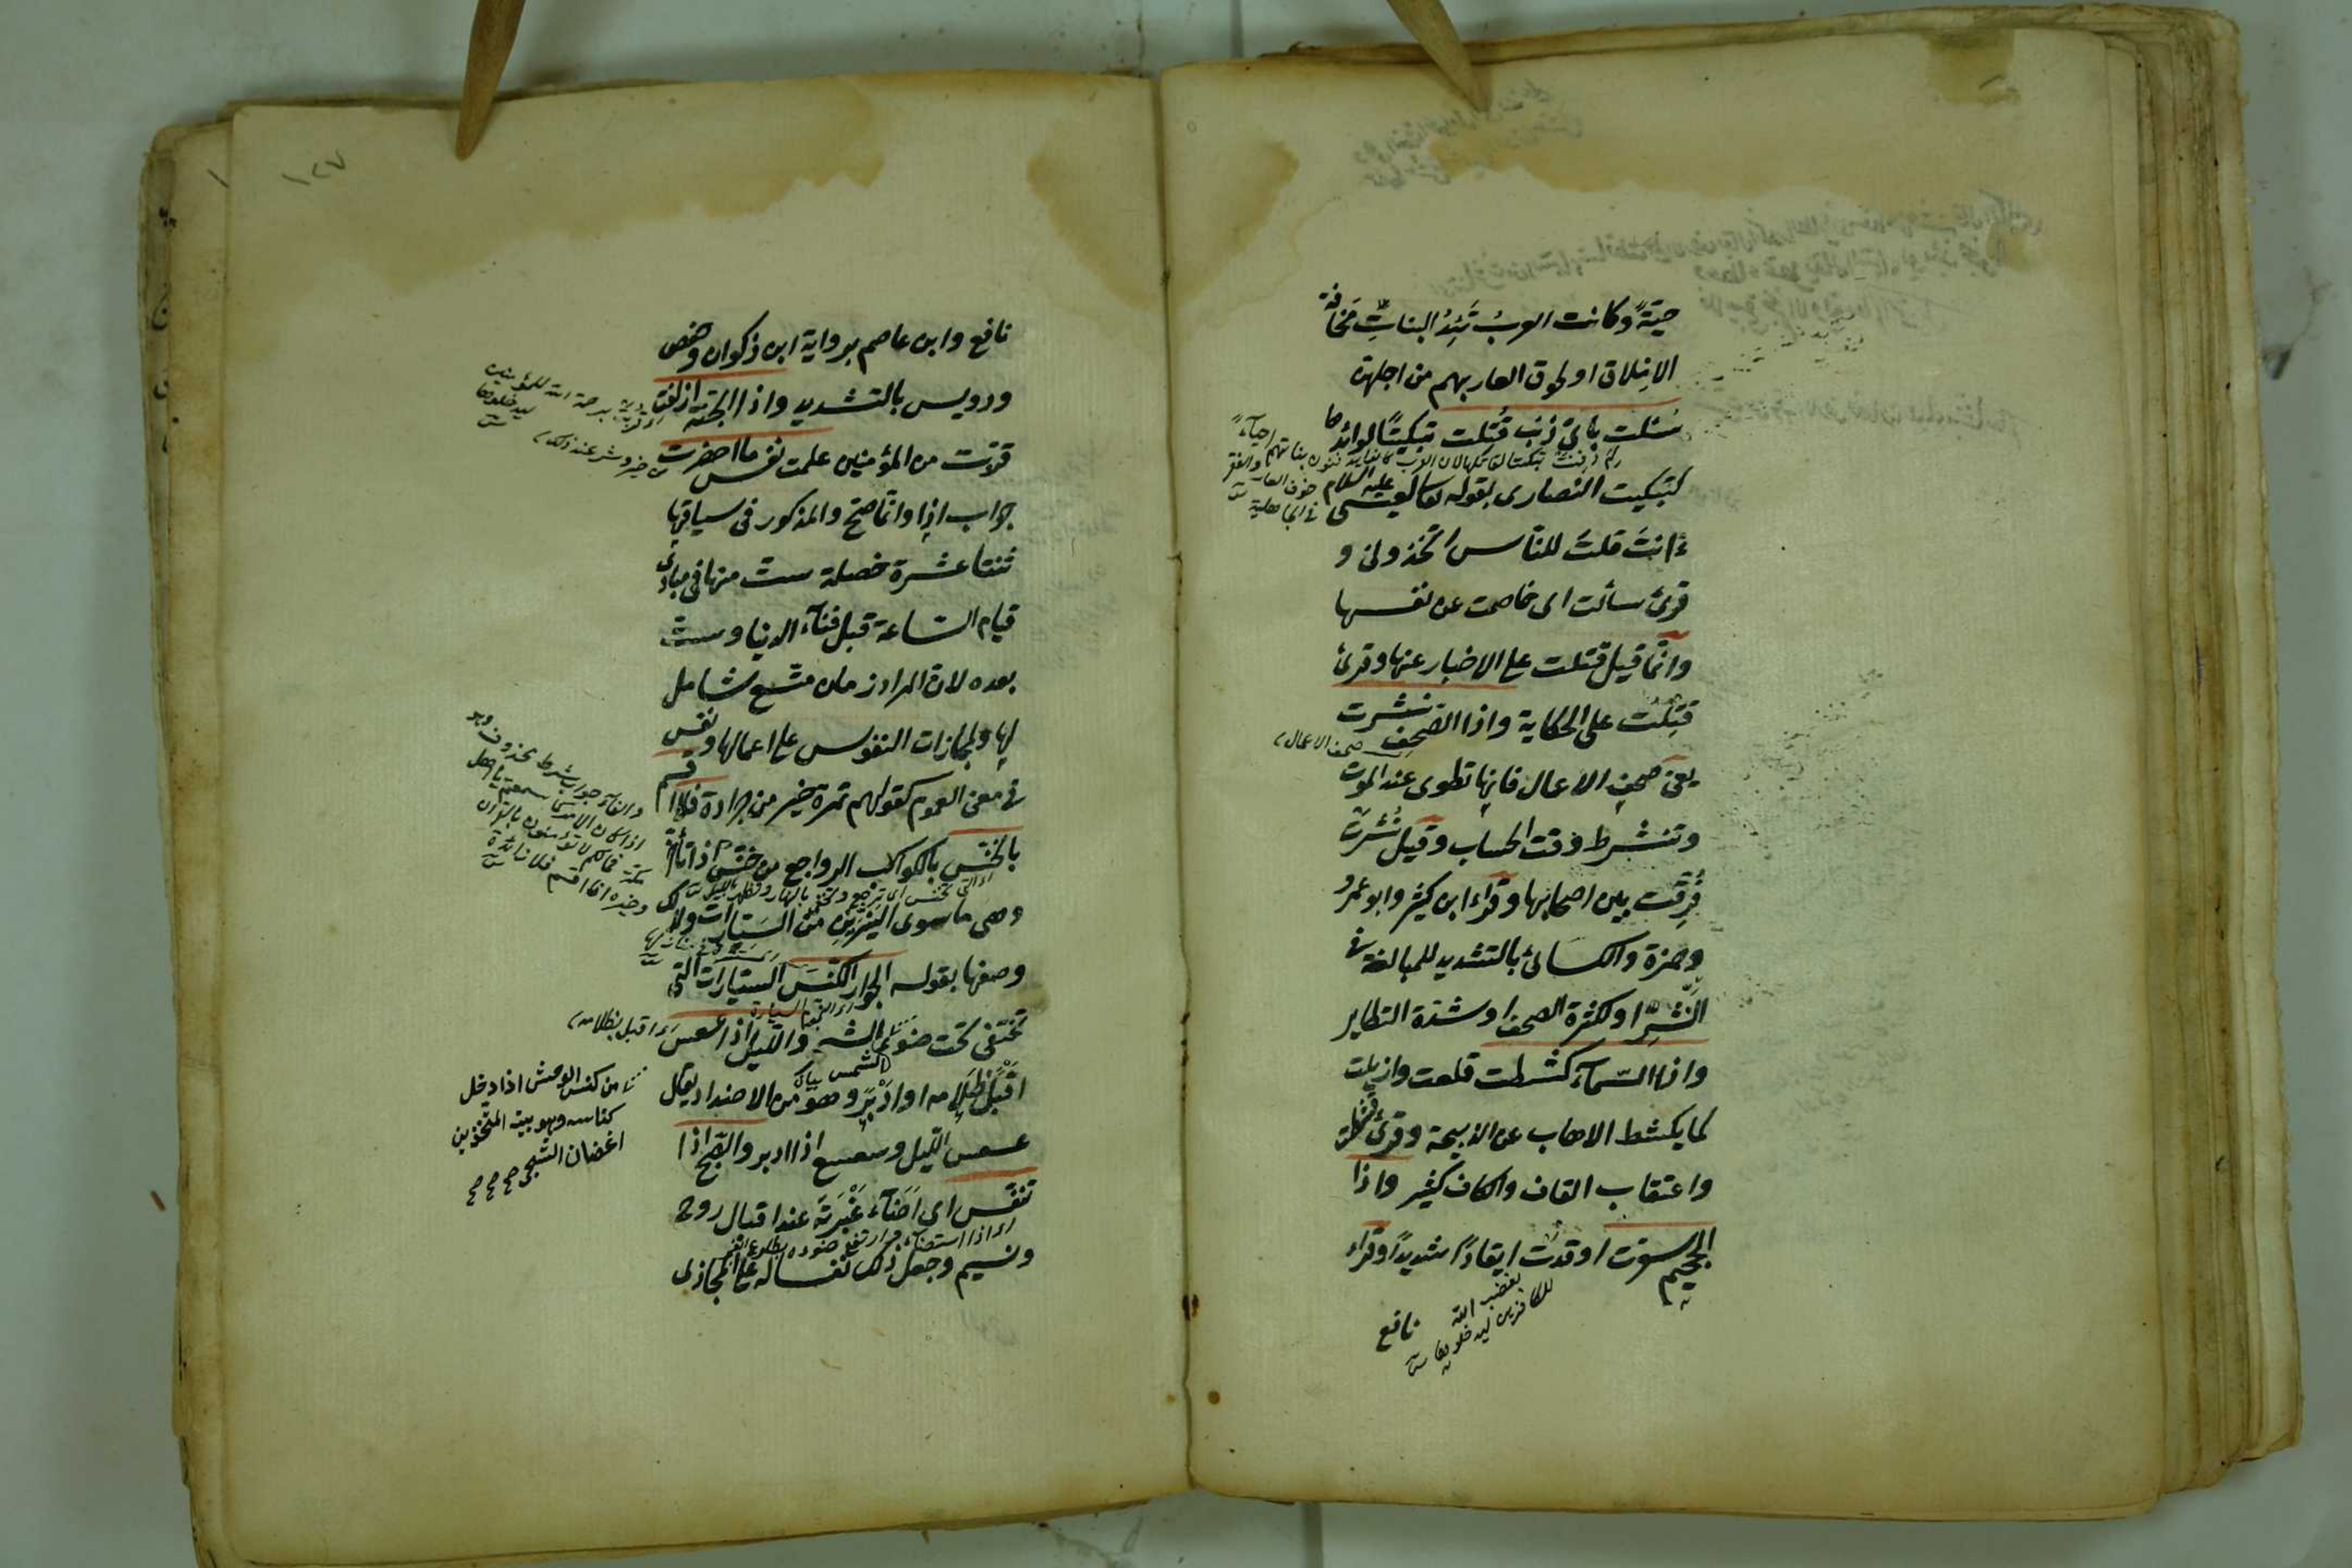 حيّة وكانت العرب تئد البنات مخافة
الاملاق او لحوق العار بهم من اجلهن
سئلت بايّ ذنب قتلت تبكيتًا لوائدها
كتبكيت النصارى بقوله تعالى لعيسى عليه السلام
ءانت قلت للناس اتخذونى و
قرئ سألت اى خاصمت عن نفسها
وانما قيل قتلت على الاخبار عنها وقرئ
قتلت على الحكاية واذا الصحف نشرت
صحف الاعمال
يعنى صحف الاعمال فانها تطوى عند الموت
وتنشر وقت الحساب وقيل نشرت
فرقت بين اصحابها وقراء ابن كثير وابو عمرو
وحمزة والكسائى بالتشديد للمبالغة فى
النشر او لكثرة الصحف او شدة التطاير
واذا السماء كشطت قلعت وازيلت
كما يكشط الاهاب عن الذبيحة وقرئ قشطت
واعتقاب القاف والكاف كثير واذا
الجحيم سعرت اوقدت ايقادًا شديدًا وقراء
بغضب الله
للكافرين ليدخلوها
نافع
١٢٧
نافع وابن عاصم برواية ابن ذكوان وحفص
ورويس بالتشديد واذا الجنة ازلفت
برحمة الله للمؤمنين
ليدخلوها
قربت من المؤمنين علمت نفس ما احضرت
من خير وشر عند ذلك
جواب اذا وانما صح والمذكور فى سياقها
ثنتا عشرة خصلة ست منها فى مبادى
قيام الساعة قبل فناء الدنيا وست
بعده لان المراد زمان متسع شامل
لها ولمجازات النفوس على اعمالها ونفس
فى معنى العموم كقولهم تمرة خير من جرادة فلا اقسم
بالخنس بالكواكب الرواجع من خنس اذا تأخر
وهى ما سوى النيرين من السيارات ولذلك
وصفها بقوله الجوار الكنس السيارات التى
تختفى تحت ضوء الشمس والليل اذا عسعس
اى اقبل بظلامه
اقبل ظلامه او ادبر وهو من الاضداد يقال
عسعس الليل وسعسع اذا ادبر والصبح اذا
تنفس اى اضاء غبرته عند اقبال روح
ونسيم وجعل ذلك نفسا له على المجازى
من كنس الوحش اذا دخل
كناسه وهو بيته المتخذ من
اغصان الشجر صح صح صح